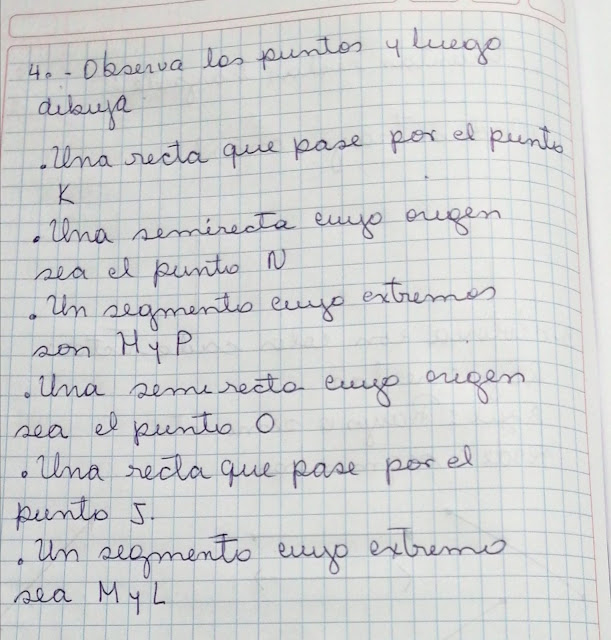 4. - Observa los puntos y luego
dibuja
. Una recta que pase por el punto
K
. Una semirecta cuyo origen
sea el punto N
. Un segmento cuyo extremos
son H y P
. Una semirecta cuyo origen
sea el punto O
. Una recta que pase por el
punto J.
. Un segmento cuyo extremo
sea M y L